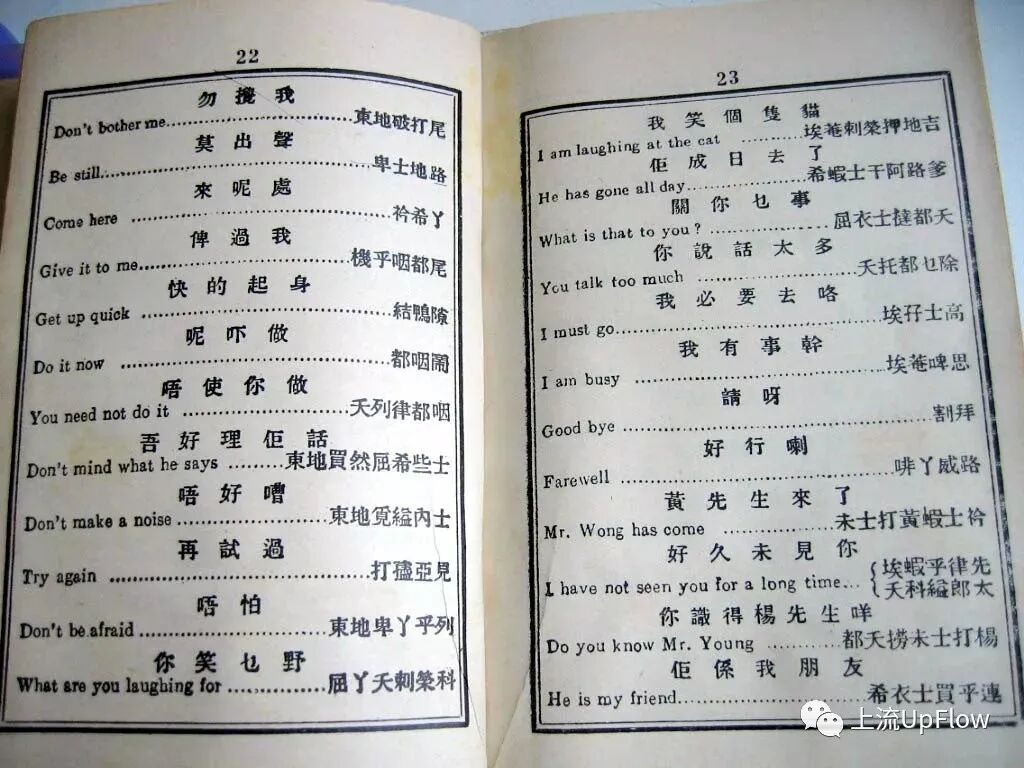 22
勿攪我
Don't bother me 東地破打尾
莫出聲
Be still 卑士地路
來呢處
Come here 衿希丫
俾過我
Give it to me 機乎咽都尾
快的起身
Get up quick 結鴨隙
呢吓做
Do it now 都咽鬧
唔使你做
You need not do it 夭列律都咽
吾好理佢話
Don't mind what he says 東地買然屈希些士
唔好嘈
Don't make a noise 東地覓縊內士
再試過
Try again 打亞見
唔怕
Don't be afraid 東地卑丫乎列
你笑乜野
What are you laughing for 屈丫夭剌榮科
23
我笑個隻貓
I am laughing at the cat 埃菴剌榮押地吉
佢成日去了
He has gone all day 希蝦士干阿路爹
關你乜事
What is that to you? 屈衣士撻都夭
你說話太多
You talk too much 夭托都乜除
我必要去咯
I must go 埃孖士高
我有事幹
I am busy 埃菴啤思
請呀
Good bye 割拜
好行喇
Farewell 啡丫威路
黃先生來了
Mr. Wong has come 未士打黃蝦士衿
好久未見你
I have not seen you for a long time 埃蝦乎律先
夭科縊郎太
你識得楊先生咩
Do you know Mr. Young 都夭撈未士打楊
佢係我朋友
He is my friend 希衣士買乎連
上流UpFlow